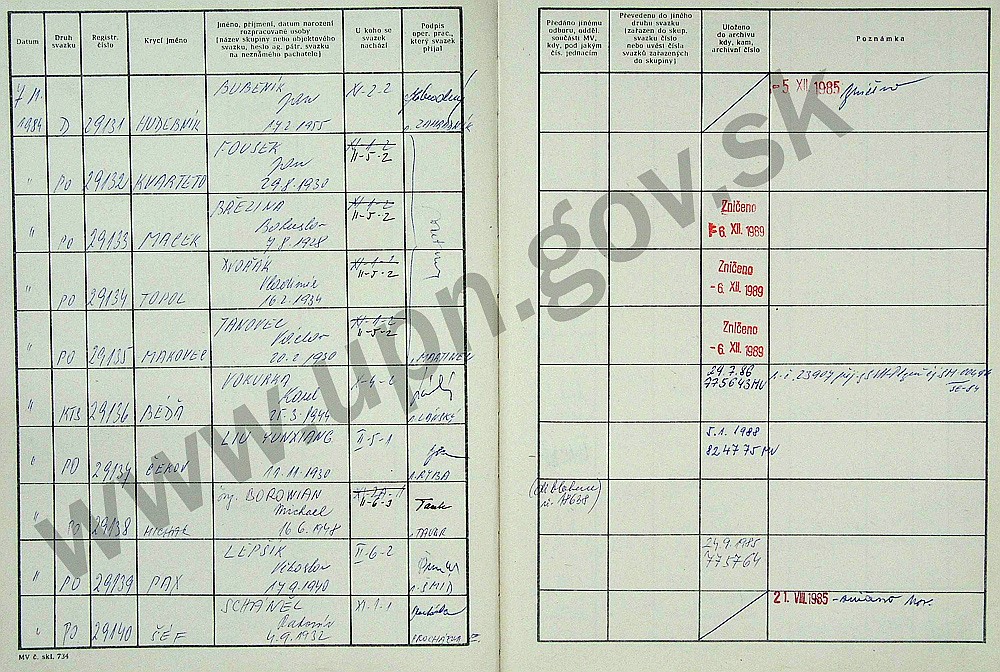 Datum
Druh svazku
Registr. číslo
Krycí jméno
Jméno, příjmení, datum narození rozpracované osoby (název skupiny nebo objektového svazku, heslo ag. pátr. svazku na neznámého pachatele)
U koho se svazek nachází
Podpis oper. prac., který svazek přijal
Předáno jinému odboru, odděl. součásti MV, kdy, pod jakým čís. jednacím
Převedeno do jiného druhu svazku (zařazen do skup. svazku číslo nebo uvésti čísla svazků zařazených do skupiny)
Uloženo do archivu kdy, kam, archivní číslo
Poznámka
BUBENÍK
XI-2-2
7 11.
Jan
1984 D 29131 HUDEBNÍK 17.2.1955 ZAHRADNÍK
- 5 XII. 1985
FOUSEK
XI-1-2
II-5-2
Jan
" PO 29132 KVARTETO 29.8.1930
BŘEZINA
XI-1-2
II-5-2
Bohuslav
" PO 29133 MACEK 7.8.1928
Zničeno
6. XII. 1989
DVOŘÁK
II-5-2
Vladimír
" PO 29134 TOPOL 16.2.1934
Zničeno
- 6. XII. 1989
JANOVEC
XI-1-2
II-5-2
Václav
" PO 29135 MAKOVEC 20.2.1930 MARTINEK
Zničeno
- 6. XII. 1989
VOKURKA
Karel
" KTS 29136 BÉĎA 25.3.1944
29.7.86
775643 MV
LIU YUNXIANG
II-5-1
" PO 29137 ČEKOV 11.11.1930 RYBA
5.1.1988
824775 MV
ing. BOROWIAN
II-6-3
Michael
" PO 29138 MICHAL 16.6.1948 TAUER
LEPŠÍK
II-6-2
Vítoslav
" PO 29139 PAX 17.9.1940 ŠMÍD
24.9.1985
775764
SCHÁNĚL
XI-1-1
" PO 29140 ŠÉF 4.9.1932 PROCHÁZKA
21. VIII. 1985
MV č. skl. 734
www.upn.gov.sk